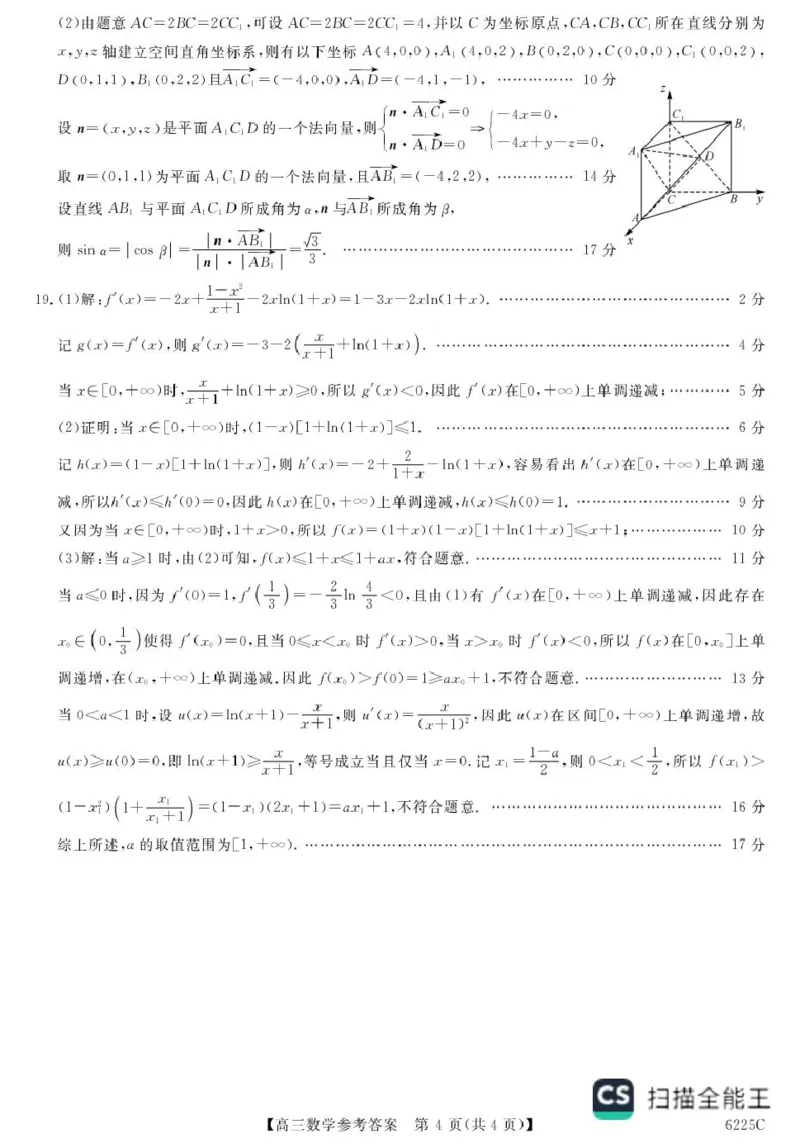 (2)由题意 AC=2BC=2CC₁,可设 AC=2BC=2CC₁=4,并以 C 为坐标原点,CA,CB,CC₁ 所在直线分别为
x,y,z 轴建立空间直角坐标系,则有以下坐标 A(4,0,0),A₁(4,0,2),B(0,2,0),C(0,0,0),C₁(0,0,2),
D(0,1,1),B₁(0,2,2)且$\overrightarrow{A_1C_1}$=(-4,0,0),$\overrightarrow{A_1D}$=(-4,1,-1), …………… 10 分
设 n=(x,y,z)是平面 A₁C₁D 的一个法向量,则$\begin{cases} n\cdot\overrightarrow{A_1C_1}=0 \\ n\cdot\overrightarrow{A_1D}=0 \end{cases}$⇒$\begin{cases} -4x=0, \\ -4x+y-z=0, \end{cases}$
取 n=(0,1,1)为平面 A₁C₁D 的一个法向量,且$\overrightarrow{AB_1}$=(-4,2,2), …………… 14 分
设直线 AB₁ 与平面 A₁C₁D所成角为 α,n 与$\overrightarrow{AB_1}$所成角为 β,
则 sin α=|cos β|=$\frac{|n\cdot\overrightarrow{AB_1}|}{|n|\cdot|\overrightarrow{AB_1}|}$=$\frac{\sqrt{3}}{3}$. …………………………………… 17 分
z
C₁
B₁
A₁
D
C
B
y
A
x
19.(1)解:f′(x)=-2x+$\frac{1-x^2}{x+1}$-2xln(1+x)=1-3x-2xln(1+x). …………………………………… 2 分
记 g(x)=f′(x),则 g′(x)=-3-2($\frac{x}{x+1}$+ln(1+x)). …………………………………… 4 分
当 x∈[0,+∞)时,$\frac{x}{x+1}$+ln(1+x)≥0,所以 g′(x)<0,因此 f′(x)在[0,+∞)上单调递减;………… 5 分
(2)证明:当 x∈[0,+∞)时,(1-x)[1+ln(1+x)]≤1. …………………………………… 6 分
记 h(x)=(1-x)[1+ln(1+x)],则 h′(x)=-2+$\frac{2}{1+x}$-ln(1+x),容易看出 h′(x)在[0,+∞)上单调递
减,所以h′(x)≤h′(0)=0,因此 h(x)在[0,+∞)上单调递减,h(x)≤h(0)=1. ………………………… 9 分
又因为当 x∈[0,+∞)时,1+x>0,所以 f(x)=(1+x)(1-x)[1+ln(1+x)]≤x+1;……………… 10 分
(3)解:当 a≥1 时,由(2)可知,f(x)≤1+x≤1+ax,符合题意. …………………………………… 11 分
当 a≤0 时,因为 f′(0)=1,f′($\frac{1}{3}$)=-$\frac{2}{3}$ln $\frac{4}{3}$<0,且由(1)有 f′(x)在[0,+∞)上单调递减,因此存在
x₀∈(0,$\frac{1}{3}$)使得 f′(x₀)=0,且当 0≤x<x₀ 时 f′(x)>0,当 x>x₀ 时 f′(x)<0,所以 f(x)在[0,x₀]上单
调递增,在(x₀,+∞)上单调递减.因此 f(x₀)>f(0)=1≥ax₀+1,不符合题意. ……………………… 13 分
当 0<a<1 时,设 u(x)=ln(x+1)-$\frac{x}{x+1}$,则 u′(x)=$\frac{x}{(x+1)^2}$,因此 u(x)在区间[0,+∞)上单调递增,故
u(x)≥u(0)=0,即 ln(x+1)≥$\frac{x}{x+1}$,等号成立当且仅当 x=0.记 x₁=$\frac{1-a}{2}$,则 0<x₁<$\frac{1}{2}$,所以 f(x₁)>
(1-x₁²)(1+$\frac{x_1}{x_1+1}$)=(1-x₁)(2x₁+1)=ax₁+1,不符合题意. …………………………………… 16 分
综上所述,a 的取值范围为[1,+∞). …………………………………… 17 分
CS 扫描全能王
【高三数学参考答案 第 4 页(共 4 页)】
6225C